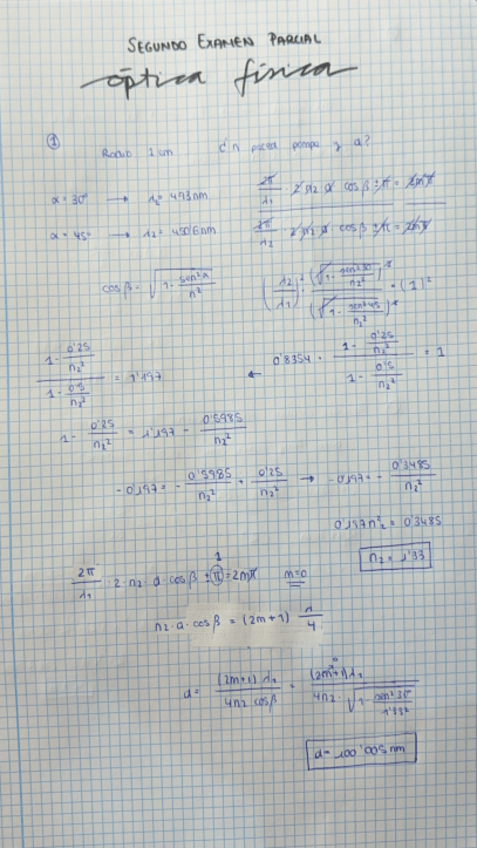 SEGUNDO EXAMEN PARCIAL
óptica física
①
Radio 2 cm ¿ n pared pompa y a?
α = 30° → λ₁ = 493 nm
2π/λ₁ · 2 n₂ a cos β ± π = 2mπ
α = 45° → λ₂ = 450'6 nm
2π/λ₂ · 2 n₂ a cos β ± π = 2mπ
cos β = √(1 - sen²α/n²)
(λ₂/λ₁)² · (√(1 - sen²30/n₂²))² / (√(1 - sen²45/n₂²))² = (1)²
(1 - 0'25/n₂²) / (1 - 0'5/n₂²) = 1'197 ← 0'8354 · (1 - 0'25/n₂²) / (1 - 0'5/n₂²) = 1
1 - 0'25/n₂² = 1'197 - 0'5985/n₂²
-0'197 = - 0'5985/n₂² + 0'25/n₂² → -0'197 = - 0'3485/n₂²
0'197 n₂² = 0'3485
n₂ = 1'33
1
2π/λ₁ · 2 · n₂ · a · cos β ± π = 2mπ m=0
n₂ · a · cos β = (2m+1) λ/4
0
d = (2m+1) λ₁ / 4n₂ cos β = (2m+1) λ₁ / 4n₂ · √(1 - sen²30°/1'33²)
d = 100'005 nm